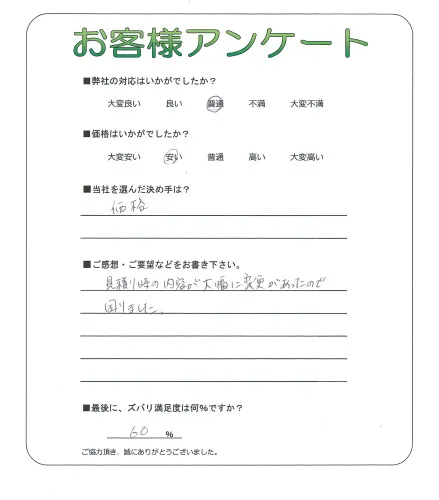 お客様アンケート
■弊社の対応はいかがでしたか？
大変良い 良い 普通 不満 大変不満
■価格はいかがでしたか？
大変安い 安い 普通 高い 大変高い
■当社を選んだ決め手は？
価格
■ご感想・ご要望などをお書き下さい。
見積り時の内容が大幅に変更があったので
困りました。
■最後に、ズバリ満足度は何%ですか？
60 %
ご協力頂き、誠にありがとうございました。